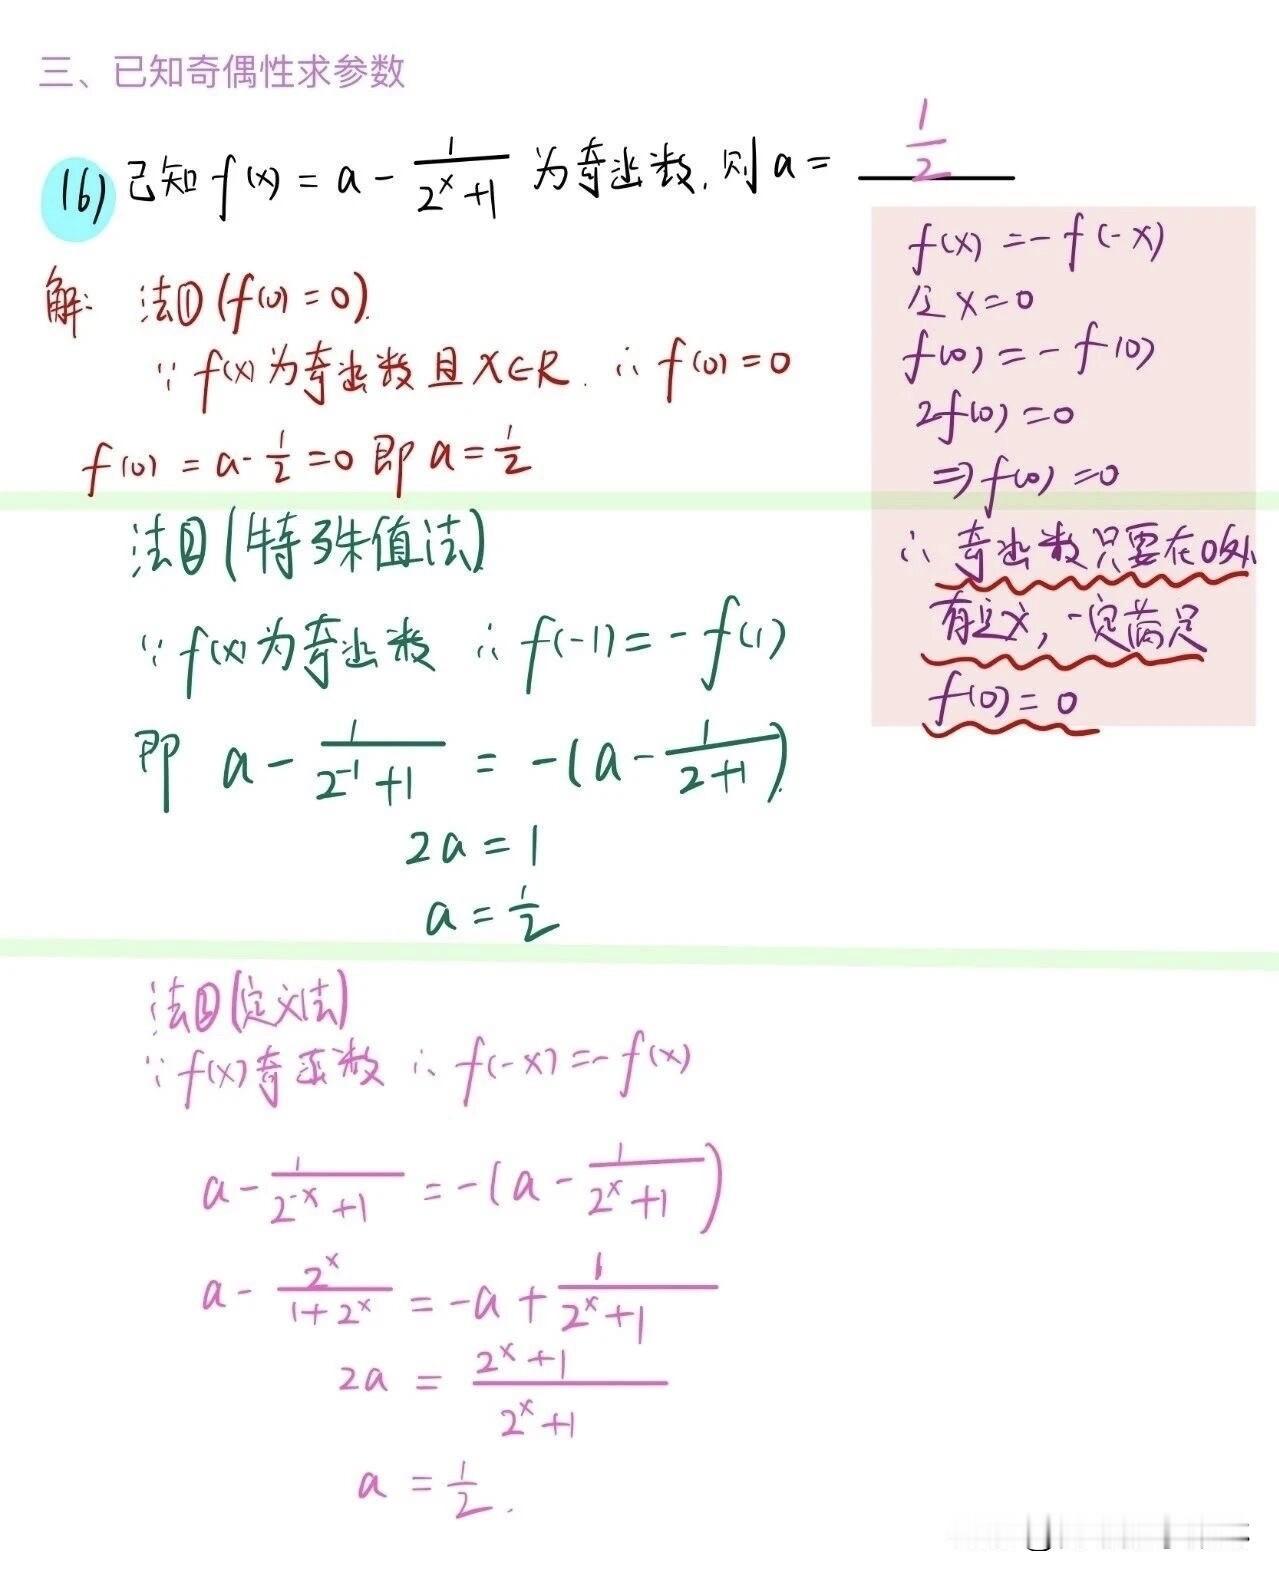 三、已知奇偶性求参数
(6) 已知 f(x) = a - \frac{1}{2^x+1} 为奇函数, 则 a = \frac{1}{2}
解: 法① (f(0) = 0).
∵ f(x) 为奇函数且 x∈R. ∴ f(0) = 0
f(0) = a - \frac{1}{2} = 0 即 a = \frac{1}{2}
f(x) = - f(-x)
令 x = 0
f(0) = - f(0)
2f(0) = 0
⇒ f(0) = 0
∴ 奇函数只要在0处
有定义, 一定满足
f(0) = 0
法② (特殊值法)
∵ f(x) 为奇函数 ∴ f(-1) = - f(1)
即 a - \frac{1}{2^{-1}+1} = -(a - \frac{1}{2+1}).
2a = 1
a = \frac{1}{2}
法② (定义法)
∵ f(x) 奇函数 ∴ f(-x) = - f(x)
a - \frac{1}{2^{-x}+1} = -(a - \frac{1}{2^x+1})
a - \frac{2^x}{1+2^x} = -a + \frac{1}{2^x+1}
2a = \frac{2^x+1}{2^x+1}
a = \frac{1}{2}.